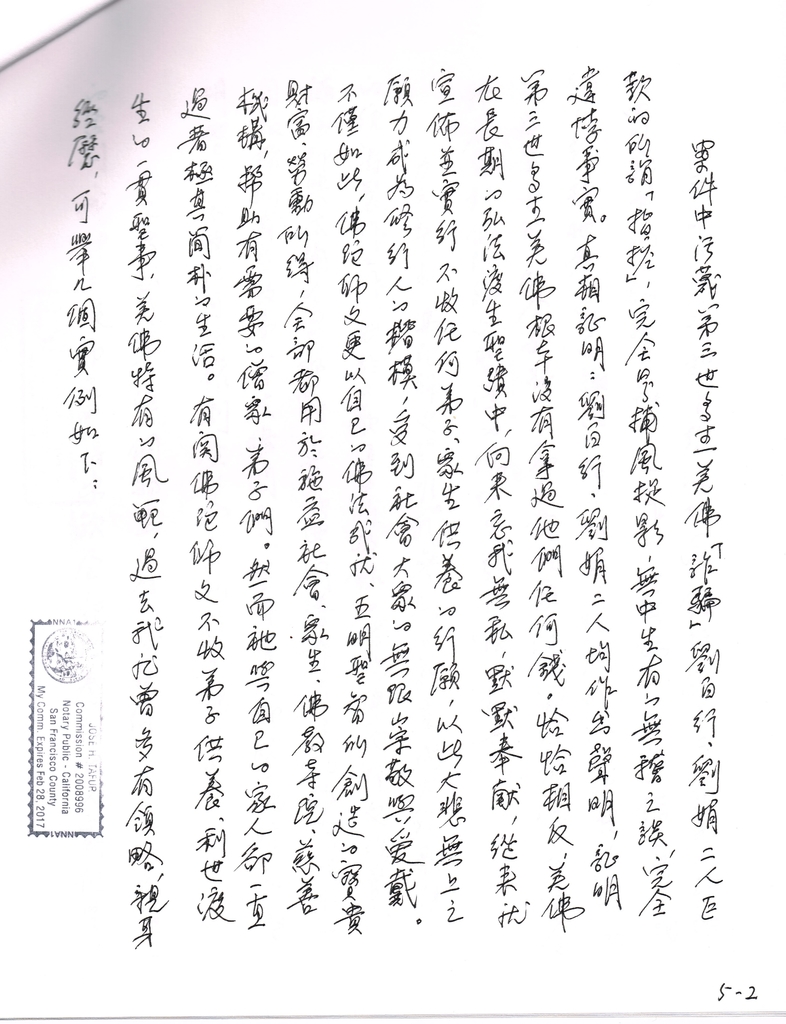 案件中污衊第三世多杰羌佛「詐騙」劉百行、劉娟二人巨
款的所謂「指控」，完全是捕風捉影，無中生有的無稽之談，完全
違悖事實。真相証明：劉百行、劉娟二人均作出聲明，証明
第三世多杰羌佛根本沒有拿過他們任何錢。恰恰相反，羌佛
在長期的弘法渡生聖蹟中，向來忘我無私，默默奉献，從來就
宣佈並實行不收任何弟子、眾生供養的行願，以此大悲無上之
願力成為修行人的楷模，受到社會大眾的無限崇敬與愛戴。
不僅如此，佛陀師父更以自己的佛法成就、五明聖智所創造的寶貴
財富、勞動所得，全部都用於施益社會、眾生、佛教寺院、慈善
機構，幫助有需要的僧眾、弟子們。然而祂與自己的家人卻一直
過著極其簡朴的生活。有関佛陀師父不收弟子供養、利世渡
生的一貫聖事，羌佛特有的風範，過去我就曾多有領略，親身
經歷，可舉几個實例如下：
JOSE H. TAFUR
Commission # 2008996
Notary Public - California
San Francisco County
My Comm. Expires Feb 28, 2017
NNA1
NNA1
5-2